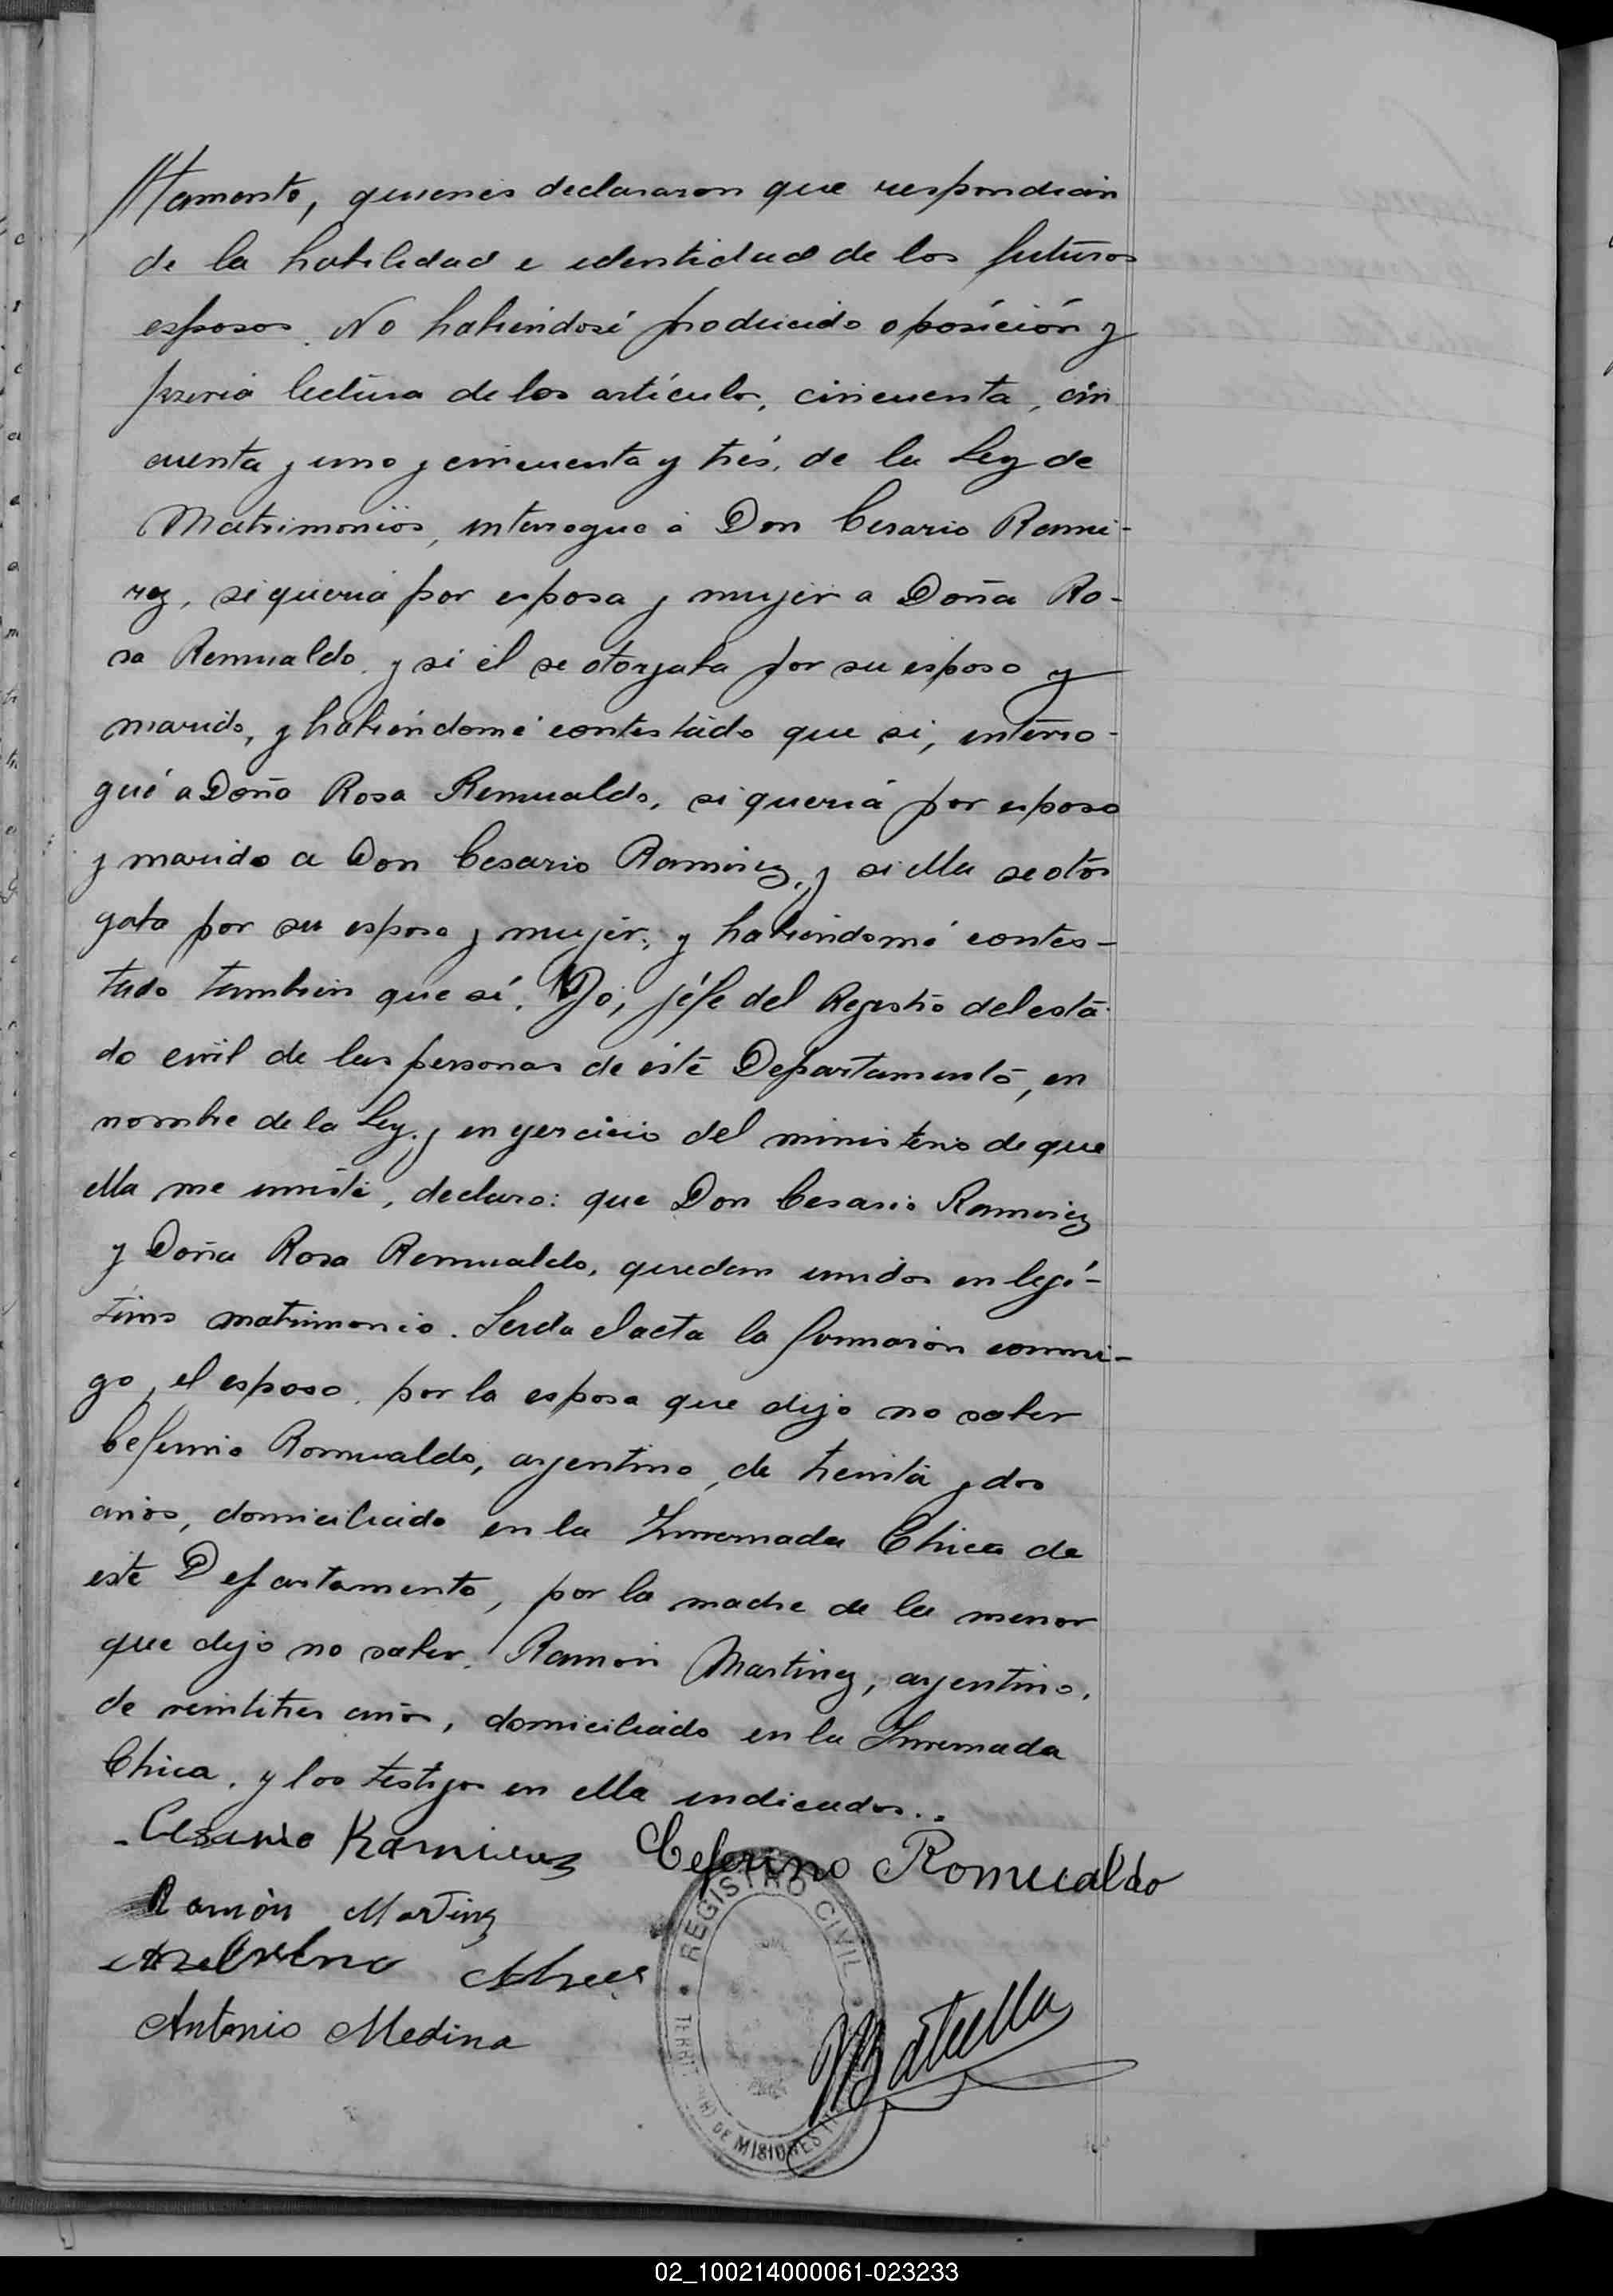 tamento, quienes declararon que respondian
de la habilidad e identidad de los futuros
esposos. No habiendosé producido oposición y
previa lectura de los artículos, cincuenta, cin
cuenta y uno y cincuenta y trés, de la Ley de
Matrimonios, interrogué á Don Cesario Rami-
rez, si queria por esposa y mujer a Doña Ro-
sa Remualdo, y si él se otorgaba por su esposo y
marido, y habiéndomé contestado que si, interro-
gué a Doña Rosa Remualdo, si queria por esposo
y marido a Don Cesario Ramirez, y si ella se otor
gaba por su esposa y mujer, y habiendomé contes-
tado tambien que sí. Yo, jéfe del Registro del esta
do civil de las personas de este Departamento, en
nombre de la Ley, y en ejercicio del ministerio de que
ella me inviste, declaro: que Don Cesario Ramirez
y Doña Rosa Remualdo, quedan unidos en legí-
timo matrimonio. Leida el acta la firmaron conmi-
go, el esposo, por la esposa que dijo no saber
Ceferino Romualdo, argentino, de treinta y dos
años, domiciliado en la Invernada Chica de
este Departamento, por la madre de la menor
que dijo no saber, Ramón Martinez, argentino,
de veintitres años, domiciliado en la Invernada
Chica, y los testigos en ella indicados..
Cesario Ramirez Ceferino Romualdo
Ramón Martinez
Antonio Medina
REGISTRO CIVIL
TERRITORIO DE MISIONES
02_100214000061-023233